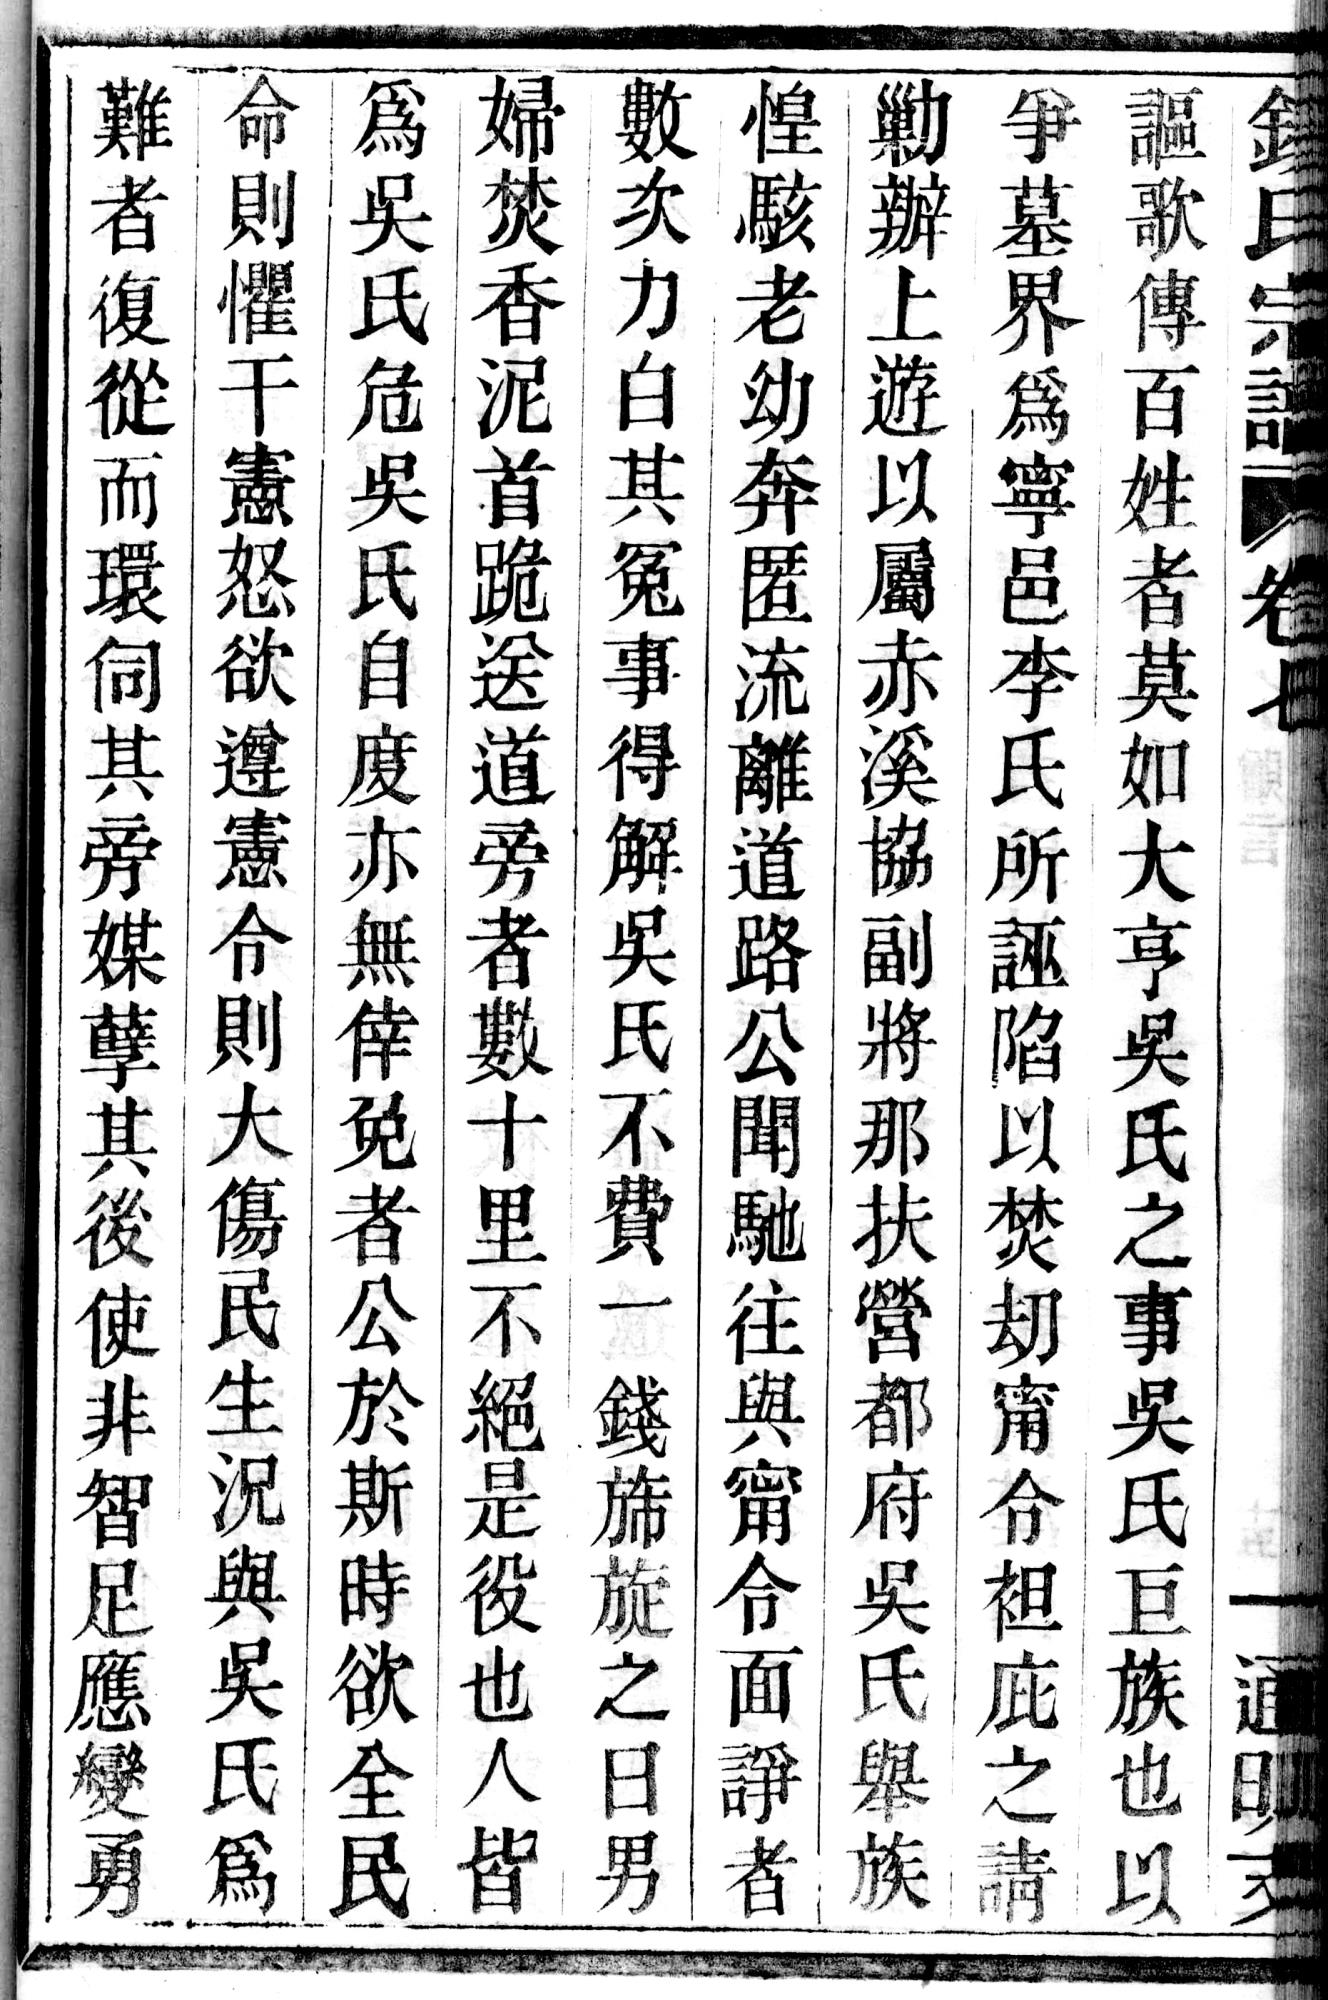 錢氏宗譜 卷七 通明
謳歌傳百姓者莫如大亨吳氏之事吳氏巨族也以
爭墓界爲寧邑李氏所誣陷以焚刧甯令袒庇之請
勦辦上遊以屬赤溪協副將那扶營都府吳氏舉族
惶駭老幼奔匿流離道路公聞馳往與甯令面諍者
數次力白其冤事得解吳氏不費一錢旆旋之日男
婦焚香泥首跪送道旁者數十里不絕是役也人皆
爲吳氏危吳氏自度亦無倖免者公於斯時欲全民
命則懼干憲怒欲遵憲令則大傷民生況與吳氏爲
難者復從而環伺其旁媒孽其後使非智足應變勇